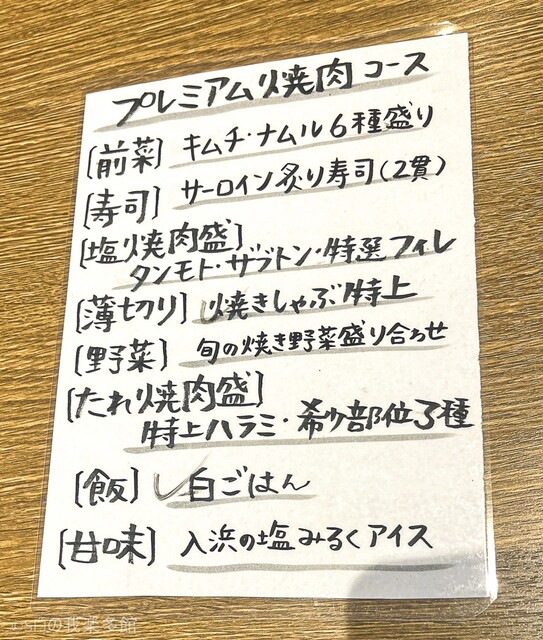 プレミアム焼肉コース
[前菜] キムチ・ナムル6種盛り
[寿司] サーロイン炙り寿司(2貫)
[塩焼肉盛]
タンモト・ザブトン・特選フィレ
[薄切り] 焼きしゃぶ特上
[野菜] 旬の焼き野菜盛り合わせ
[たれ焼肉盛]
特上ハラミ・希少部位3種
[飯] 白ごはん
[甘味] 入浜の塩みるくアイス